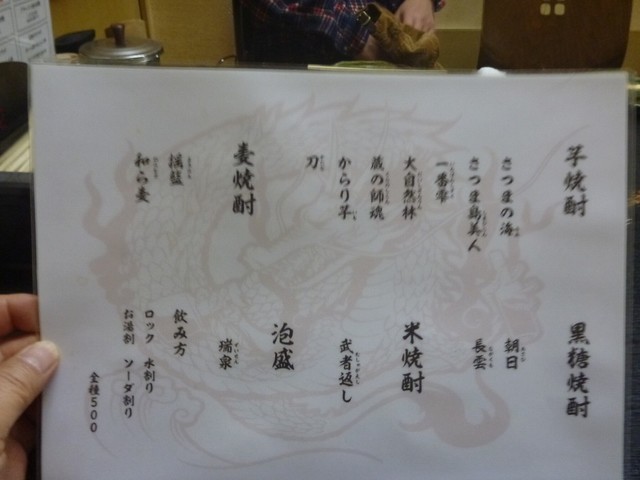 芋焼酎
さつまの海
さつま島美人
一番雫
大自然林
蔵の師魂
からり芋
刀
麦焼酎
和ら麦
黒糖焼酎
朝日
長雲
米焼酎
武者返し
泡盛
瑞泉
飲み方
ロック 水割り
お湯割 ソーダ割り
全種500